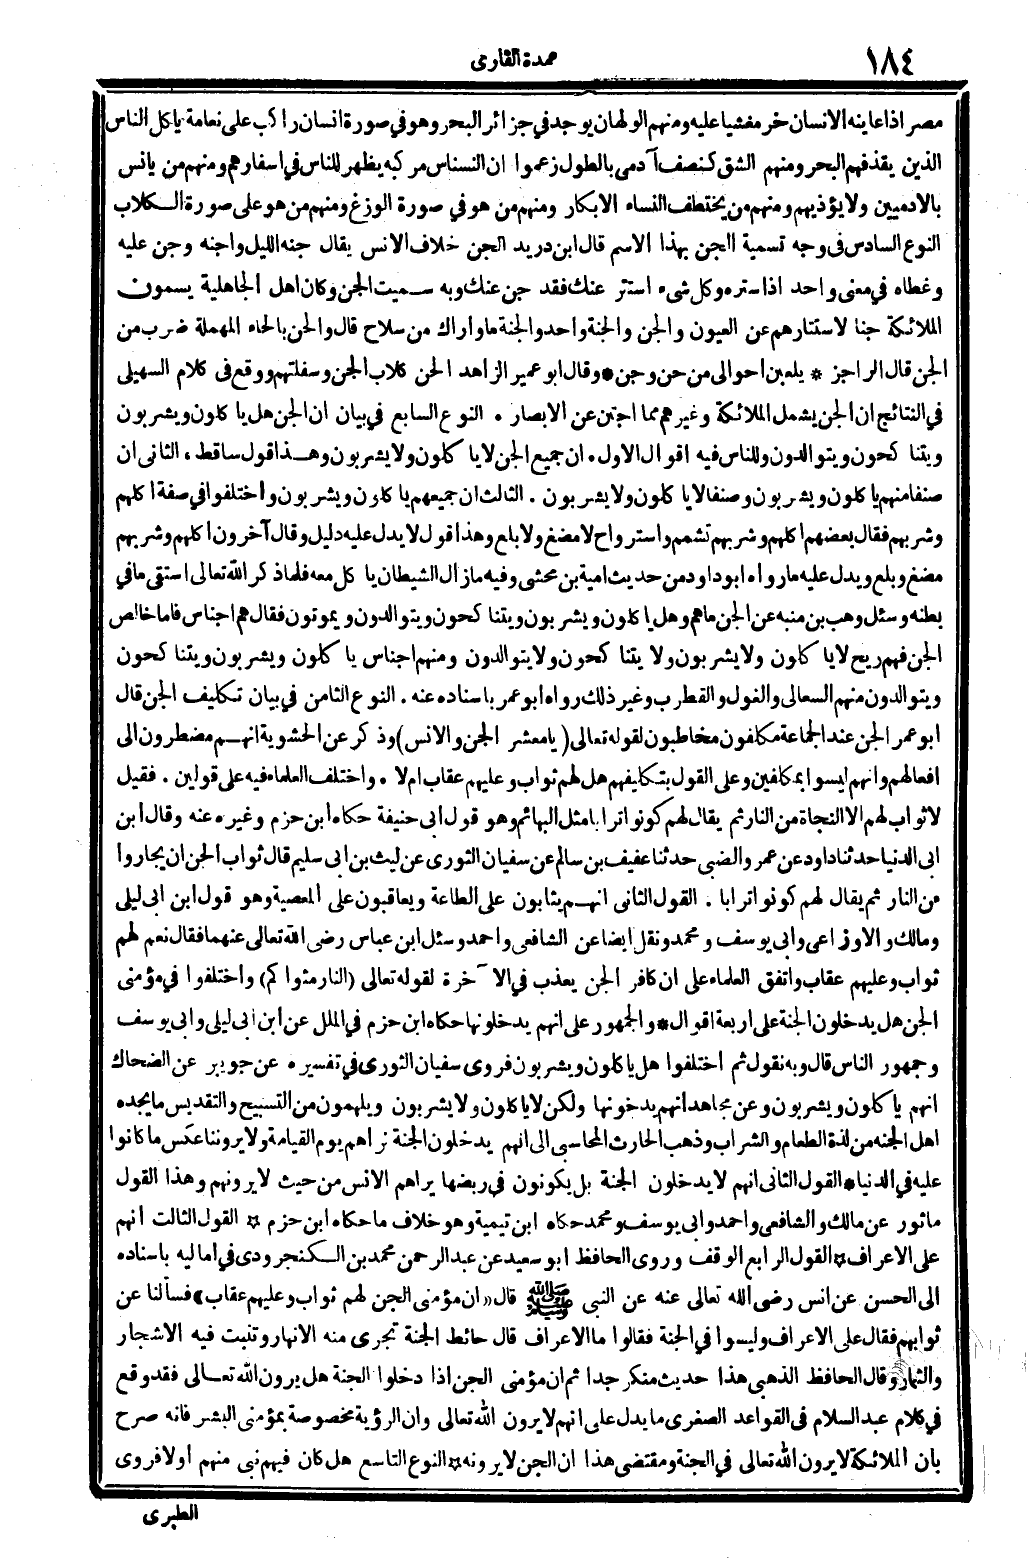 ١٨٤
عمدة القارى
مصر اذا عاينه الانسان خر مغشيا عليه ومنهم الولهان يوجد في جزائر البحر وهو في صورة انسان راكب على نعامة يا كل الناس
الذين يقذفهم البحر ومنهم الشق كنصف آدمى بالطول زعموا ان النسناس مركبه يظهر للناس في اسفارهم ومنهم من يانس
بالادميين ولا يؤذيهم ومنهم من يختطف النساء الابكار ومنهم من هو في صورة الوزغ ومنهم من هو على صورة الكلاب
النوع السادس فى وجه تسمية الجن بهذا الاسم قال ابن دريد الجن خلاف الانس يقال جنه الليل واجنه وجن عليه
وغطاه في معنى واحد اذا ستره وكل شىء استتر عنك فقد جن عنك وبه سميت الجن وكان اهل الجاهلية يسمون
الملائكة جنا لاستتارهم عن العيون والجن والجنة واحد والجنة ما واراك من سلاح قال والحن بالحاء المهملة ضرب من
الجن قال الراجز * يلعبن احوالى من حن وجن * وقال ابو عمير الزاهد الحن كلاب الجن وسفلتهم ووقع فى كلام السهيلى
في النتائج ان الجن يشمل الملائكة وغيرهم مما اجتن عن الابصار . النوع السابع في بيان ان الجن هل يا كلون ويشربون
ويتنا كحون ويتوالدون وللناس فيه اقوال الاول . ان جميع الجن لا يا كلون ولا يشربون وهذا قول ساقط ، الثانى ان
صنفا منهم يا كلون ويشربون وصنفا لا يا كلون ولا يشربون . الثالث ان جميعهم يا كلون ويشربون واختلفوا في صفة اكلهم
وشربهم فقال بعضهم اكلهم وشربهم تشمم واسترواح لا مضغ ولا بلع وهذا قول لا يدل عليه دليل وقال آخرون اكلهم وشربهم
مضغ وبلع ويدل عليه ما رواه ابو داود من حديث امية بن محشى وفيه ما زال الشيطان يا كل معه فلما ذكر الله تعالى استقى ما في
بطنه وسئل وهب بن منبه عن الجن ما هم وهل يا كلون ويشربون ويتنا كحون ويتوالدون ويموتون فقال هم اجناس فاما خالص
الجن فهم ريح لا يا كلون ولا يشربون ولا يتنا كحون ولا يتوالدون ومنهم اجناس يا كلون ويشربون ويتنا كحون
ويتوالدون منهم السعالى والغول والقطرب وغير ذلك رواه ابو عمر باسناده عنه . النوع الثامن في بيان تكليف الجن قال
ابو عمر الجن عند الجماعة مكلفون مخاطبون لقوله تعالى (يا معشر الجن والانس) وذكر عن الحشوية انهم مضطرون الى
افعالهم وانهم ليسوا بمكلفين وعلى القول بتكليفهم هل لهم ثواب وعليهم عقاب ام لا . واختلف العلماء فيه على قولين . فقيل
لا ثواب لهم الا النجاة من النار ثم يقال لهم كونوا ترابا مثل البهائم وهو قول ابى حنيفة حكاه ابن حزم وغيره عنه وقال ابن
ابى الدنيا حدثنا داود عن عمر والضبى حدثنا عفيف بن سالم عن سفيان الثورى عن ليث بن ابى سليم قال ثواب الجن ان يجاروا
من النار ثم يقال لهم كونوا ترابا . القول الثانى انهم يثابون على الطاعة ويعاقبون على المعصية وهو قول ابن ابى ليلى
ومالك والاوزاعى وابى يوسف ومحمد ونقل ايضا عن الشافعى واحمد وسئل ابن عباس رضى الله تعالى عنهما فقال نعم لهم
ثواب وعليهم عقاب واتفق العلماء على ان كافر الجن يعذب في الآخرة لقوله تعالى (النار مثواكم) واختلفوا في مؤمنى
الجن هل يدخلون الجنة على اربعة اقوال * والجمهور على انهم يدخلونها حكاه ابن حزم في الملل عن ابن ابى ليلى وابى يوسف
وجمهور الناس قال وبه نقول ثم اختلفوا هل يا كلون ويشربون فروى سفيان الثورى في تفسيره عن جويبر عن الضحاك
انهم يا كلون ويشربون وعن مجاهد انهم يدخلونها ولكن لا يا كلون ولا يشربون ويلهمون من التسبيح والتقديس ما يجده
اهل الجنه من لذة الطعام والشراب وذهب الحارث المحاسبى الى انهم يدخلون الجنة نراهم يوم القيامة ولا يروننا عكس ما كانوا
عليه في الدنيا * القول الثانى انهم لا يدخلون الجنة بل يكونون في ربضها يراهم الانس من حيث لا يرونهم وهذا القول
ماثور عن مالك والشافعى واحمد وابى يوسف ومحمد حكاه ابن تيمية وهو خلاف ما حكاه ابن حزم * القول الثالث انهم
على الاعراف * القول الرابع الوقف وروى الحافظ ابو سعيد عن عبد الرحمن محمد بن الكنجرودى في اماليه باسناده
الى الحسن عن انس رضى الله تعالى عنه عن النبى ﷺ قال « ان مؤمنى الجن لهم ثواب وعليهم عقاب » فسألنا عن
ثوابهم فقال على الاعراف وليسوا في الجنة فقالوا ما الاعراف قال حائط الجنة تجرى منه الانهار وتنبت فيه الاشجار
والثمار وقال الحافظ الذهبى هذا حديث منكر جدا ثم ان مؤمنى الجن اذا دخلوا الجنة هل يرون الله تعالى فقد وقع
في كلام عبد السلام فى القواعد الصغرى ما يدل على انهم لا يرون الله تعالى وان الرؤية مخصوصة بمؤمنى البشر فانه صرح
بان الملائكة لا يرون الله تعالى في الجنة ومقتضى هذا ان الجن لا يرونه * النوع التاسع هل كان فيهم نبى منهم أو لا فروى
الطبرى